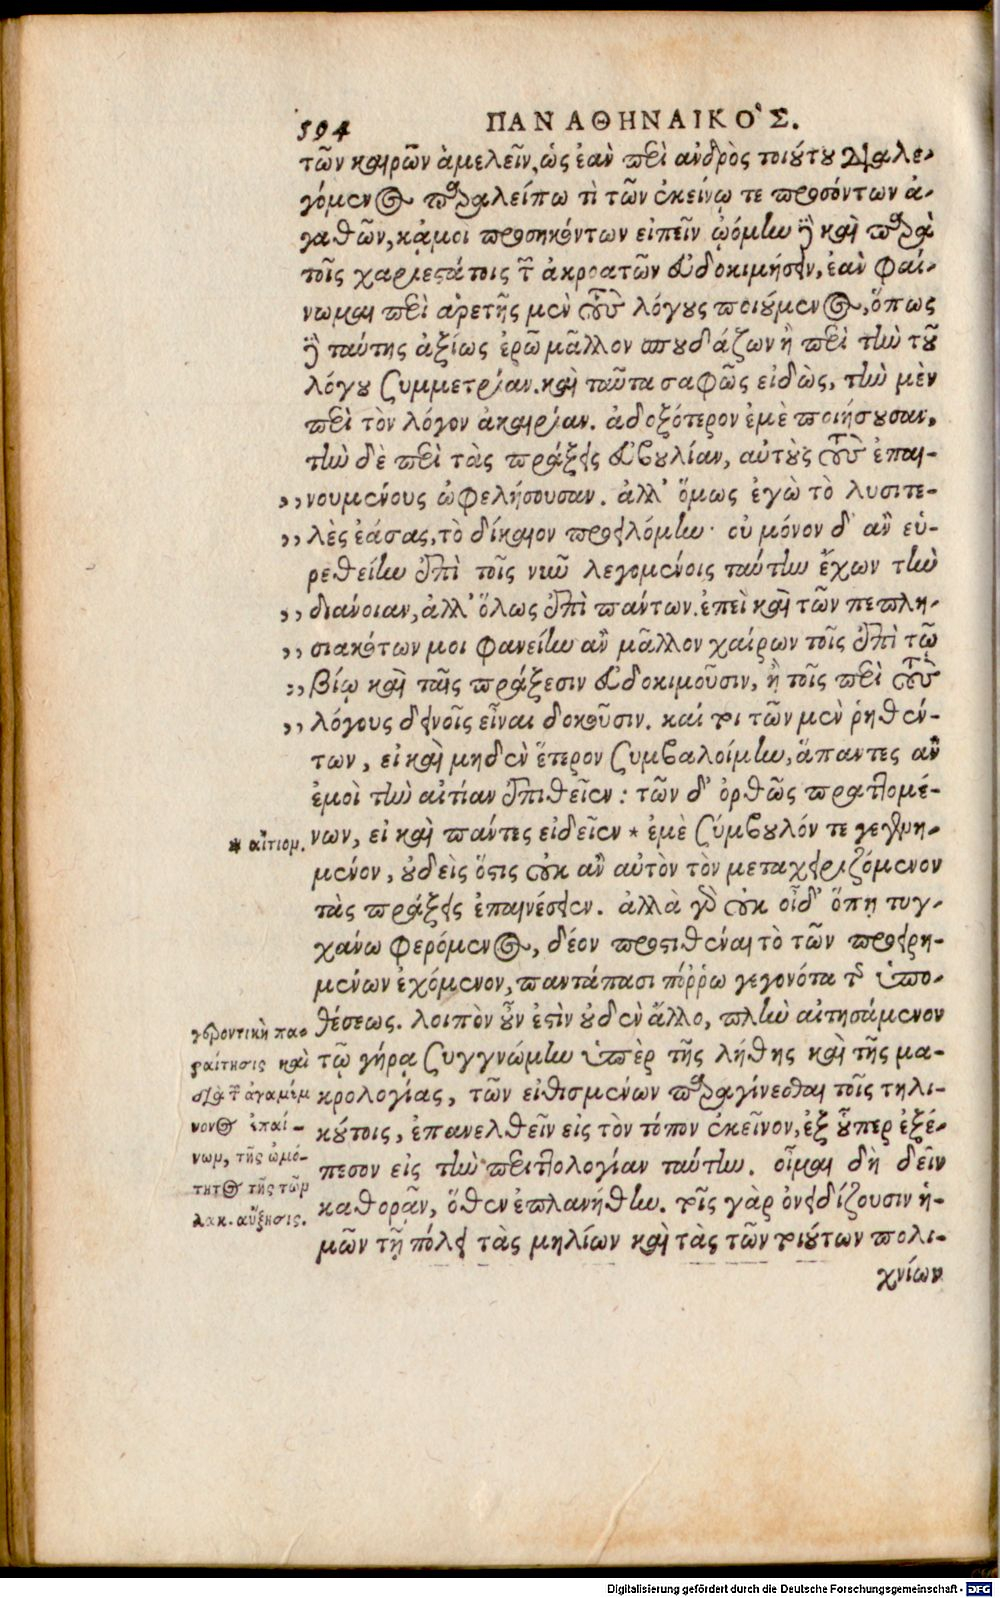 594 ΠΑΝΑΘΗΝΑΙΚΟ'Σ.
τῶν καιρῶν ἀμελεῖν, ὡς ἐὰν περὶ ἀνδρὸς τοιούτου διαλε-
γόμενος παραλείπω τὶ τῶν ἐκείνῳ τε προσόντων ἀ-
γαθῶν, κἀμοι προσηκόντων εἰπεῖν. ᾠόμην ἢ καὶ παρὰ
τοῖς χαριεστάτοις τῶν ἀκροατῶν εὐδοκιμήσειν, ἐὰν φαί-
νωμαι περὶ ἀρετῆς μὲν τοὺς λόγους ποιούμενος, ὅπως
ἢ ταύτης ἀξίως ἐρῶ μᾶλλον σπουδάζων ἢ περὶ τὴν τοῦ
λόγου συμμετρίαν. καὶ ταῦτα σαφῶς εἰδὼς, τὴν μὲν
περὶ τὸν λόγον ἀκαιρίαν. ἀδοξότερον ἐμὲ ποιήσουσαν,
τὴν δὲ περὶ τὰς πράξεις εὐβουλίαν, αὐτοὺς τοὺς ἐπαι-
,,νουμένους ὠφελήσουσαν. ἀλλ' ὅμως ἐγὼ τὸ λυσιτε-
,,λὲς ἐάσας, τὸ δίκαιον προειλόμην· οὐ μόνον δ' ἂν εὑ-
ρεθείην ἐπὶ τοῖς νῦν λεγομένοις ταύτην ἔχων τὴν
,,διάνοιαν, ἀλλ' ὅλως ἐπὶ πάντων. ἐπεὶ καὶ τῶν πεπλη-
,,σιακότων μοι φανείην ἂν μᾶλλον χαίρων τοῖς ἐπὶ τῷ
:,βίῳ καὶ ταῖς πράξεσιν εὐδοκιμοῦσιν, ἢ τοῖς περὶ τοὺς
,,λόγους δεινοῖς εἶναι δοκοῦσιν. καί τοι τῶν μὲν ῥηθέν-
των, εἰ καὶ μηδὲν ἕτερον συμβαλοίμην, ἅπαντες ἂν
ἐμοὶ τὴν αἰτίαν ἐπιθεῖεν: τῶν δ' ὀρθῶς πραττομέ-
* αἴτιομ. νων, εἰ καὶ πάντες εἰδεῖεν * ἐμὲ σύμβουλόν τε γεγενη-
μένον, οὐδεὶς ὅστις οὐκ ἂν αὐτὸν τὸν μεταχειριζόμενον
τὰς πράξεις ἐπαινέσειεν. ἀλλὰ γὰρ οὐκ οἶδ' ὅπῃ τυγ-
χάνω φερόμενος, δέον προστιθέναι τὸ τῶν προειρη-
μένων ἐχόμενον, παντάπασι πόῤῥω γεγονότα τῆς ὑπο-
θέσεως. λοιπὸν οὖν ἐστὶν οὐδὲν ἄλλο, πλὴν αἰτησάμενον
τῷ γήρᾳ συγγνώμην ὑπὲρ τῆς λήθης καὶ τῆς μα-
κρολογίας, τῶν εἰθισμένων παραγίνεσθαι τοῖς τηλι-
κούτοις, ἐπανελθεῖν εἰς τὸν τόπον ἐκεῖνον, ἐξ οὗπερ ἐξέ-
πεσον εἰς τὴν περιττολογίαν ταύτην. οἶμαι δὴ δεῖν
καθορᾶν, ὅθεν ἐπλανήθην. τοῖς γὰρ ὀνειδίζουσιν ἡ-
μῶν τῇ πόλει τὰς μηλίων καὶ τὰς τῶν τοιούτων πολι-
χνίων
γεροντικὴ πα-
ραίτησις καὶ
διὰ τῶν ἀγαμέμ
νονος ἐπαί-
νωμ, τῆς ὠμό-
τητος τῆς τῶμ
λακ. αὔξησις.
Digitalisierung gefördert durch die Deutsche Forschungsgemeinschaft - DFG